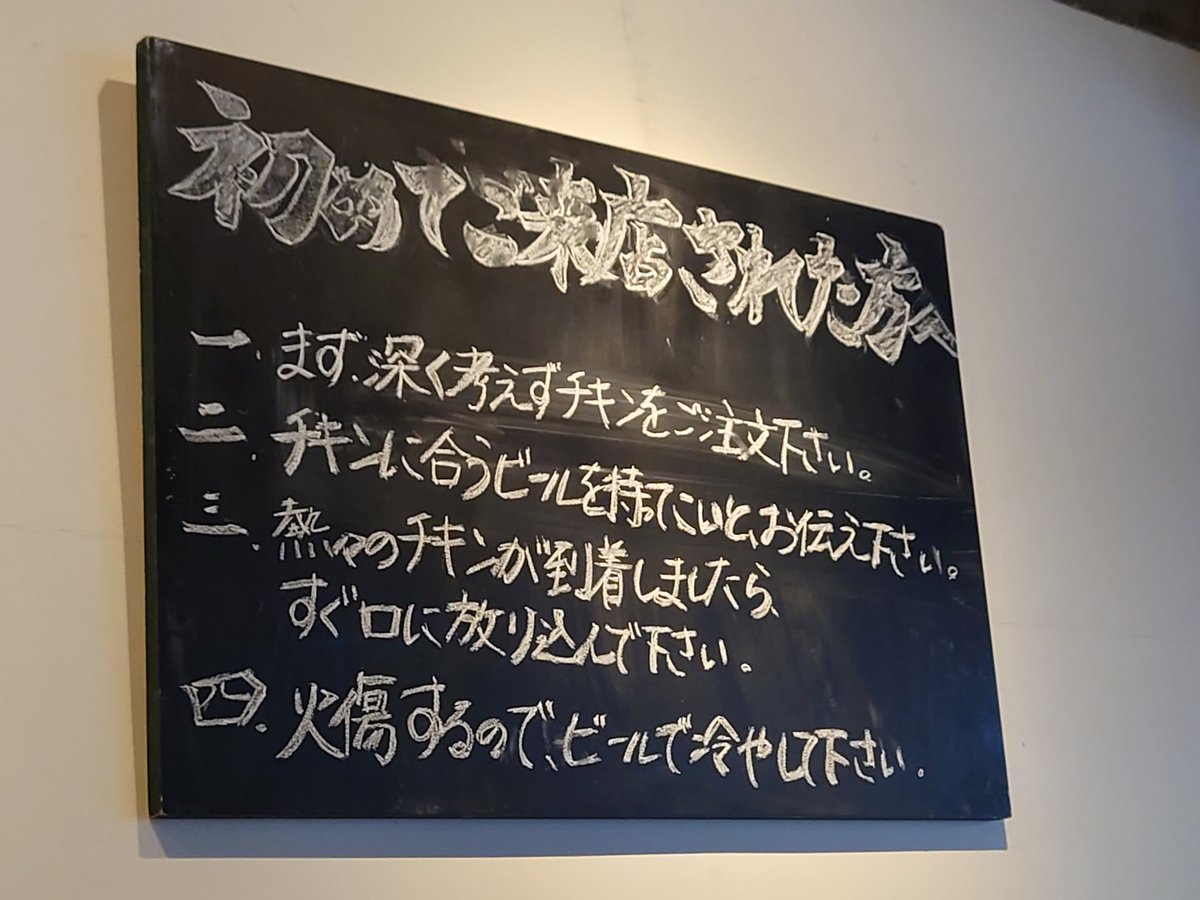 初めてご来店された方へ
一. まず、深く考えずチキンをご注文下さい。
二. チキンに合うビールを持ってこいと、お伝え下さい。
三. 熱々のチキンが到着しましたら、
すぐ口に放り込んで下さい。
四. 火傷するので、ビールで冷やして下さい。